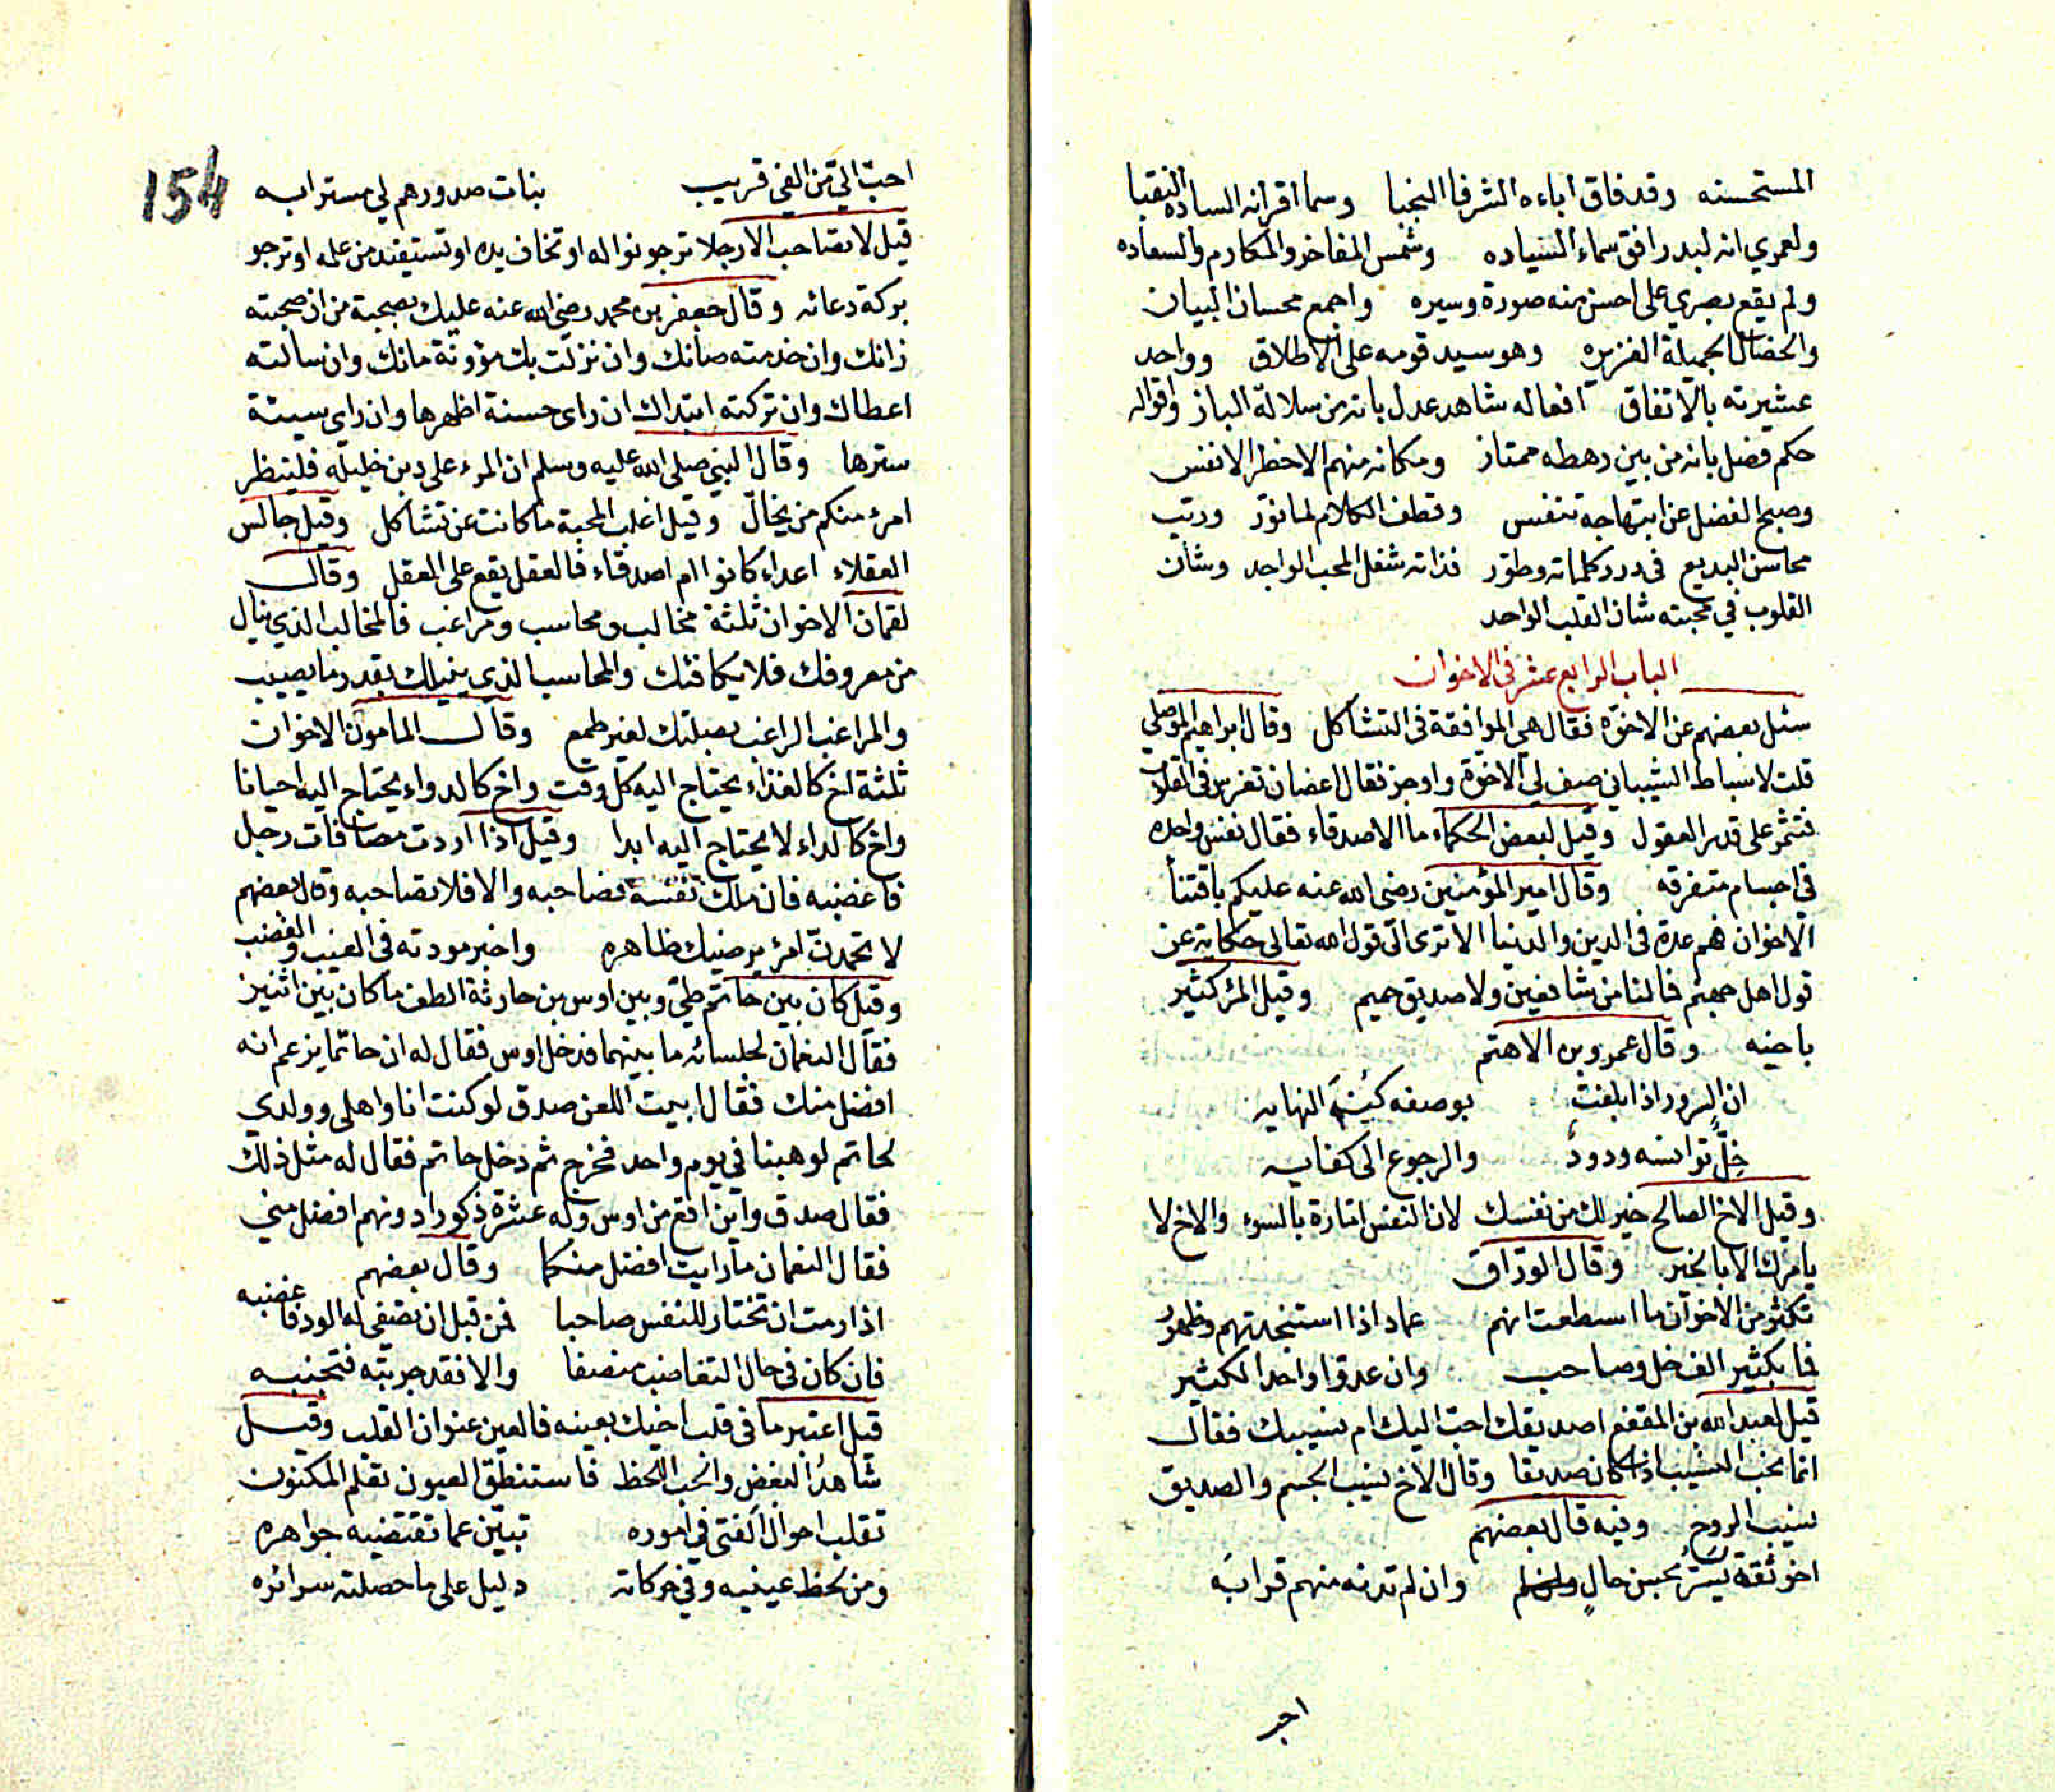 المستحسنه وقد فاق اباءه الشرفا النجبا وسما اقرانه الساده النقبا
ولعمري انه لبدر افق سماء السياده وشمس المفاخر والمكارم والسعاده
ولم يقع بصري على احسن منه صورة وسيره واجمع محسان البيان
والخصال الجميلة الغزيره وهو سيد قومه على الاطلاق وواحد
عشيرته بالاتفاق افعاله شاهد عدل بانه من سلالة الباز واقواله
حكم فصل بانه من بين رهطه ممتاز ومكانه منهم الاخطر الانفس
وصبح الفضل عن ابتهاجه تنفس وقطف الكلام لما نوّر ورتب
محاسن البديع في درر كلماته وطوّر فذاته شغل المحب الواجد وشان
القلوب في محبته شان القلب الواحد
الباب الرابع عشر في الاخوان
سئل بعضهم عن الاخوّه فقال هي الموافقة في التشاكل وقال ابراهيم الموصلي
قلت لاسباط الشيباني صف لي الاخوّة واوجز فقال اغصان تغرس في القلوب
فتثمر على قدر العقول وقيل لبعض الحكماء ما الاصدقاء فقال نفس واحده
في اجسام متفرقه وقال امير المؤمنين رضى الله عنه عليكم باقتناء
الاخوان هم عدة في الدين والدنيا الا ترى الى قول الله تعالى حكاية عن
قول اهل جهنم فما لنا من شافعين ولا صديق حميم وقيل المرؤ كثير
باخيه وقال عمرو بن الاهتم
ان السرور اذا بلغت بوصفه كنه النهايه
خلٌّ توانسه ودودٌ والرجوع الى كفايه
وقيل الاخ الصالح خير لك من نفسك لان النفس امّارة بالسوء والاخ لا
يامرك الا بالخير وقال الورّاق
تكثّر من الاخوان ما اسطعت انهم عماد اذا استنجدتهم وظهورُ
فما بكثير الف خل وصاحب وان عدوا واحدا لكثير
قيل لعبد الله بن المقفع اصديقك احبّ اليك ام نسيبك فقال
انما نحب النسيب اذا كان صديقا وقال الاخ نسيب الجسم والصديق
نسيب الروح وفيه قال بعضهم
اخو ثقة يسرّ بحسن حالٍ وان لم تدنه منهم قرابَه
احبّ
احبّ اليّ من الفي قريب بنات صدورهم لي مسترابه
قيل لا تصاحب الا رجلا ترجو نواله او تخاف يده او تستفيد من علمه او ترجو
بركة دعائه وقال جعفر بن محمد رضي الله عنه عليك بصحبة من ان صحبته
زانك وان خدمته صانك وان نزلت بك مؤونة مانك وان سالته
اعطاك وان تركته ابتداك ان راى حسنة اظهرها وان راي سيئة
سترها وقال النبي صلى الله عليه وسلم ان المرء على دين خليله فلينظر
امرؤ منكم من يخالّ وقيل اغلب المحبة ما كانت عن تشاكل وقيل جالس
العقلاء اعداء كانوا ام اصدقاء فالعقل يقع على العقل وقال
لقمان الاخوان ثلثة مخالب ومحاسب ومراغب فالمخالب الذي ينال
من معروفك فلا يكافئك والمحاسب الذي ينيلك بقدر ما يصيب
والمراغب الراغب بصلتك لغير طمع وقال المامون الاخوان
ثلثة اخ كالغذاء يحتاج اليه كل وقت واخ كالدواء يحتاج اليه احيانا
واخ كالداء لا يحتاج اليه ابدا وقيل اذا اردت مصافات رجل
فاغضبه فان ملك نفسه فصاحبه والا فلا تصاحبه وقال بعضهم
لا تحمدنّ امرؤ يرضيك ظاهره واخبر مودته في العيب والغضب
وقيل كان بين حاتم طيّ وبين اوس بن حارثة الطف ما كان بين اثنين
فقال النعمان لجلسائه ما بينهما فدخل اوس فقال له ان حاتما يزعم انه
افضل منك فقال ابيت اللعن صدق لو كنت انا واهلي وولدي
لحاتم لوهبنا في يوم واحد فخرج ثم دخل حاتم فقال له مثل ذلك
فقال صدق واين اقع من اوس وله عشرة ذكور ادونهم افضل مني
فقال النعمان ما رايت افضل منكما وقال بعضهم
اذا رمت ان تختار للنفس صاحبا فمن قبل ان تصفي له الود فاغضبه
فان كان في حال التغاضب منصفا والا فقد جربته فتجنبه
قيل اعتبر ما في قلب اخيك بعينه فالعين عنوان القلب وقيل
شاهدُ البغض والحب اللحظ فاستنطق العيون تعلم المكنون
تقلب احوال الفتى في اموره تبيّن عما تقتضيه جواهره
ومن لحظ عينيه وفي حركاته دليل على ما حصلته سرائره
154